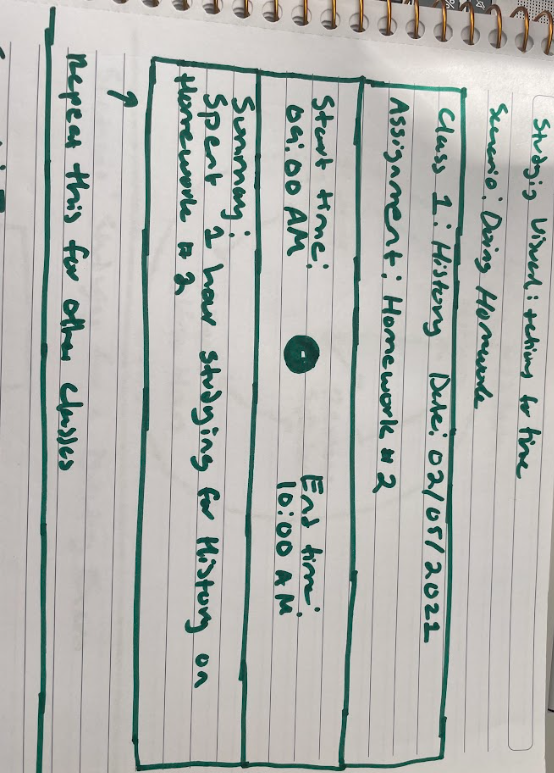 Studying Visual: relating to time
Scenario: Doing Homework
Class 1: History Date: 02/05/2022
Assignment: Homework #2
Start time: End time:
09:00 AM 10:00 AM
Summary:
Spent 1 hour studying for History on
Homework #2
↑
Repeat this for other classes